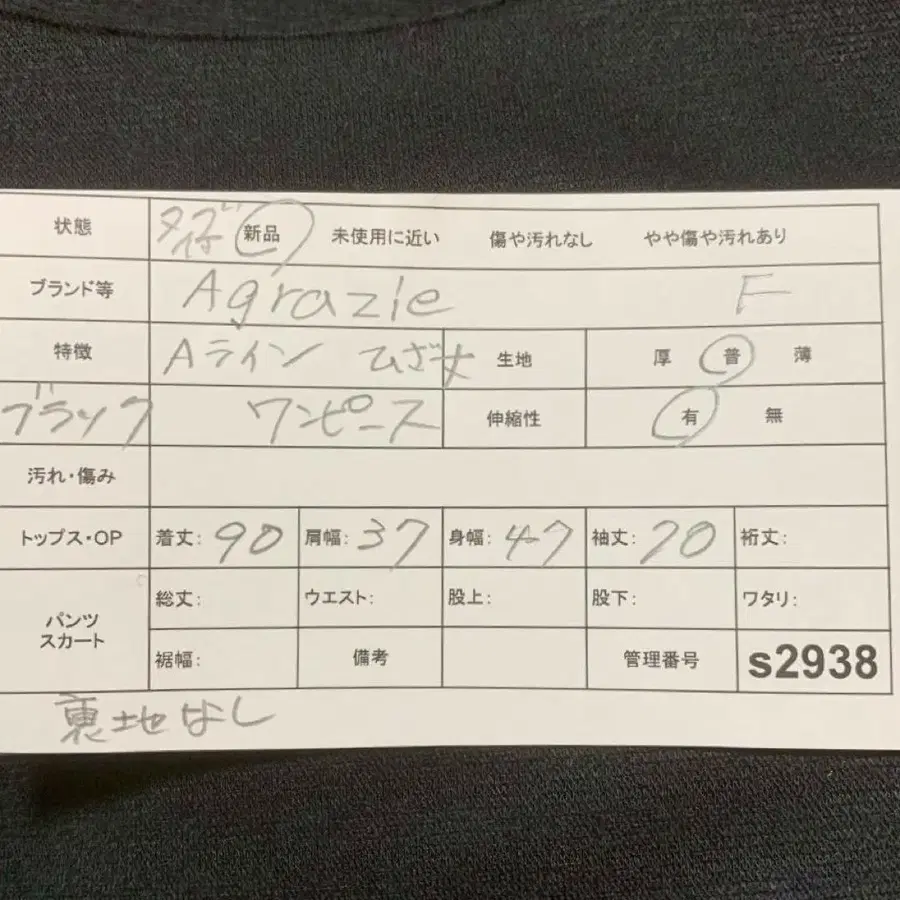 状態 タグ付 新品 未使用に近い 傷や汚れなし やや傷や汚れあり
ブランド等 Agrazie F
特徴 Aライン ひざ丈 生地 厚 普 薄
ブラック ワンピース 伸縮性 有 無
汚れ・傷み
トップス・OP 着丈: 90 肩幅: 37 身幅: 47 袖丈: 20 裄丈:
パンツ スカート 総丈: ウエスト: 股上: 股下: ワタリ:
裾幅: 備考 管理番号 s2938
裏地なし